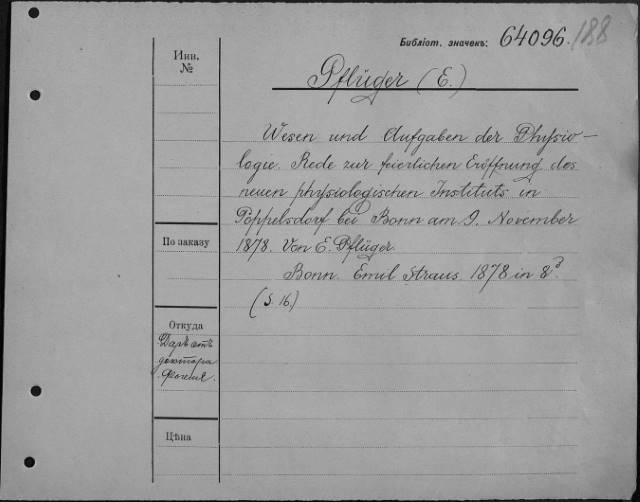 Библіот. значекъ: 64096. 188
Инв. №
Pflüger (E.)
Wesen und Aufgaben der Physio-
logie. Rede zur feierlichen Eröffnung des
neuen physiologischen Instituts in
Poppelsdorf bei Bonn am 9. November
По заказу
1878. Von E. Pflüger.
Bonn. Emil Straus 1878 in 8º.
(S. 16.)
Откуда
Даръ отъ
доктора
Цѣна